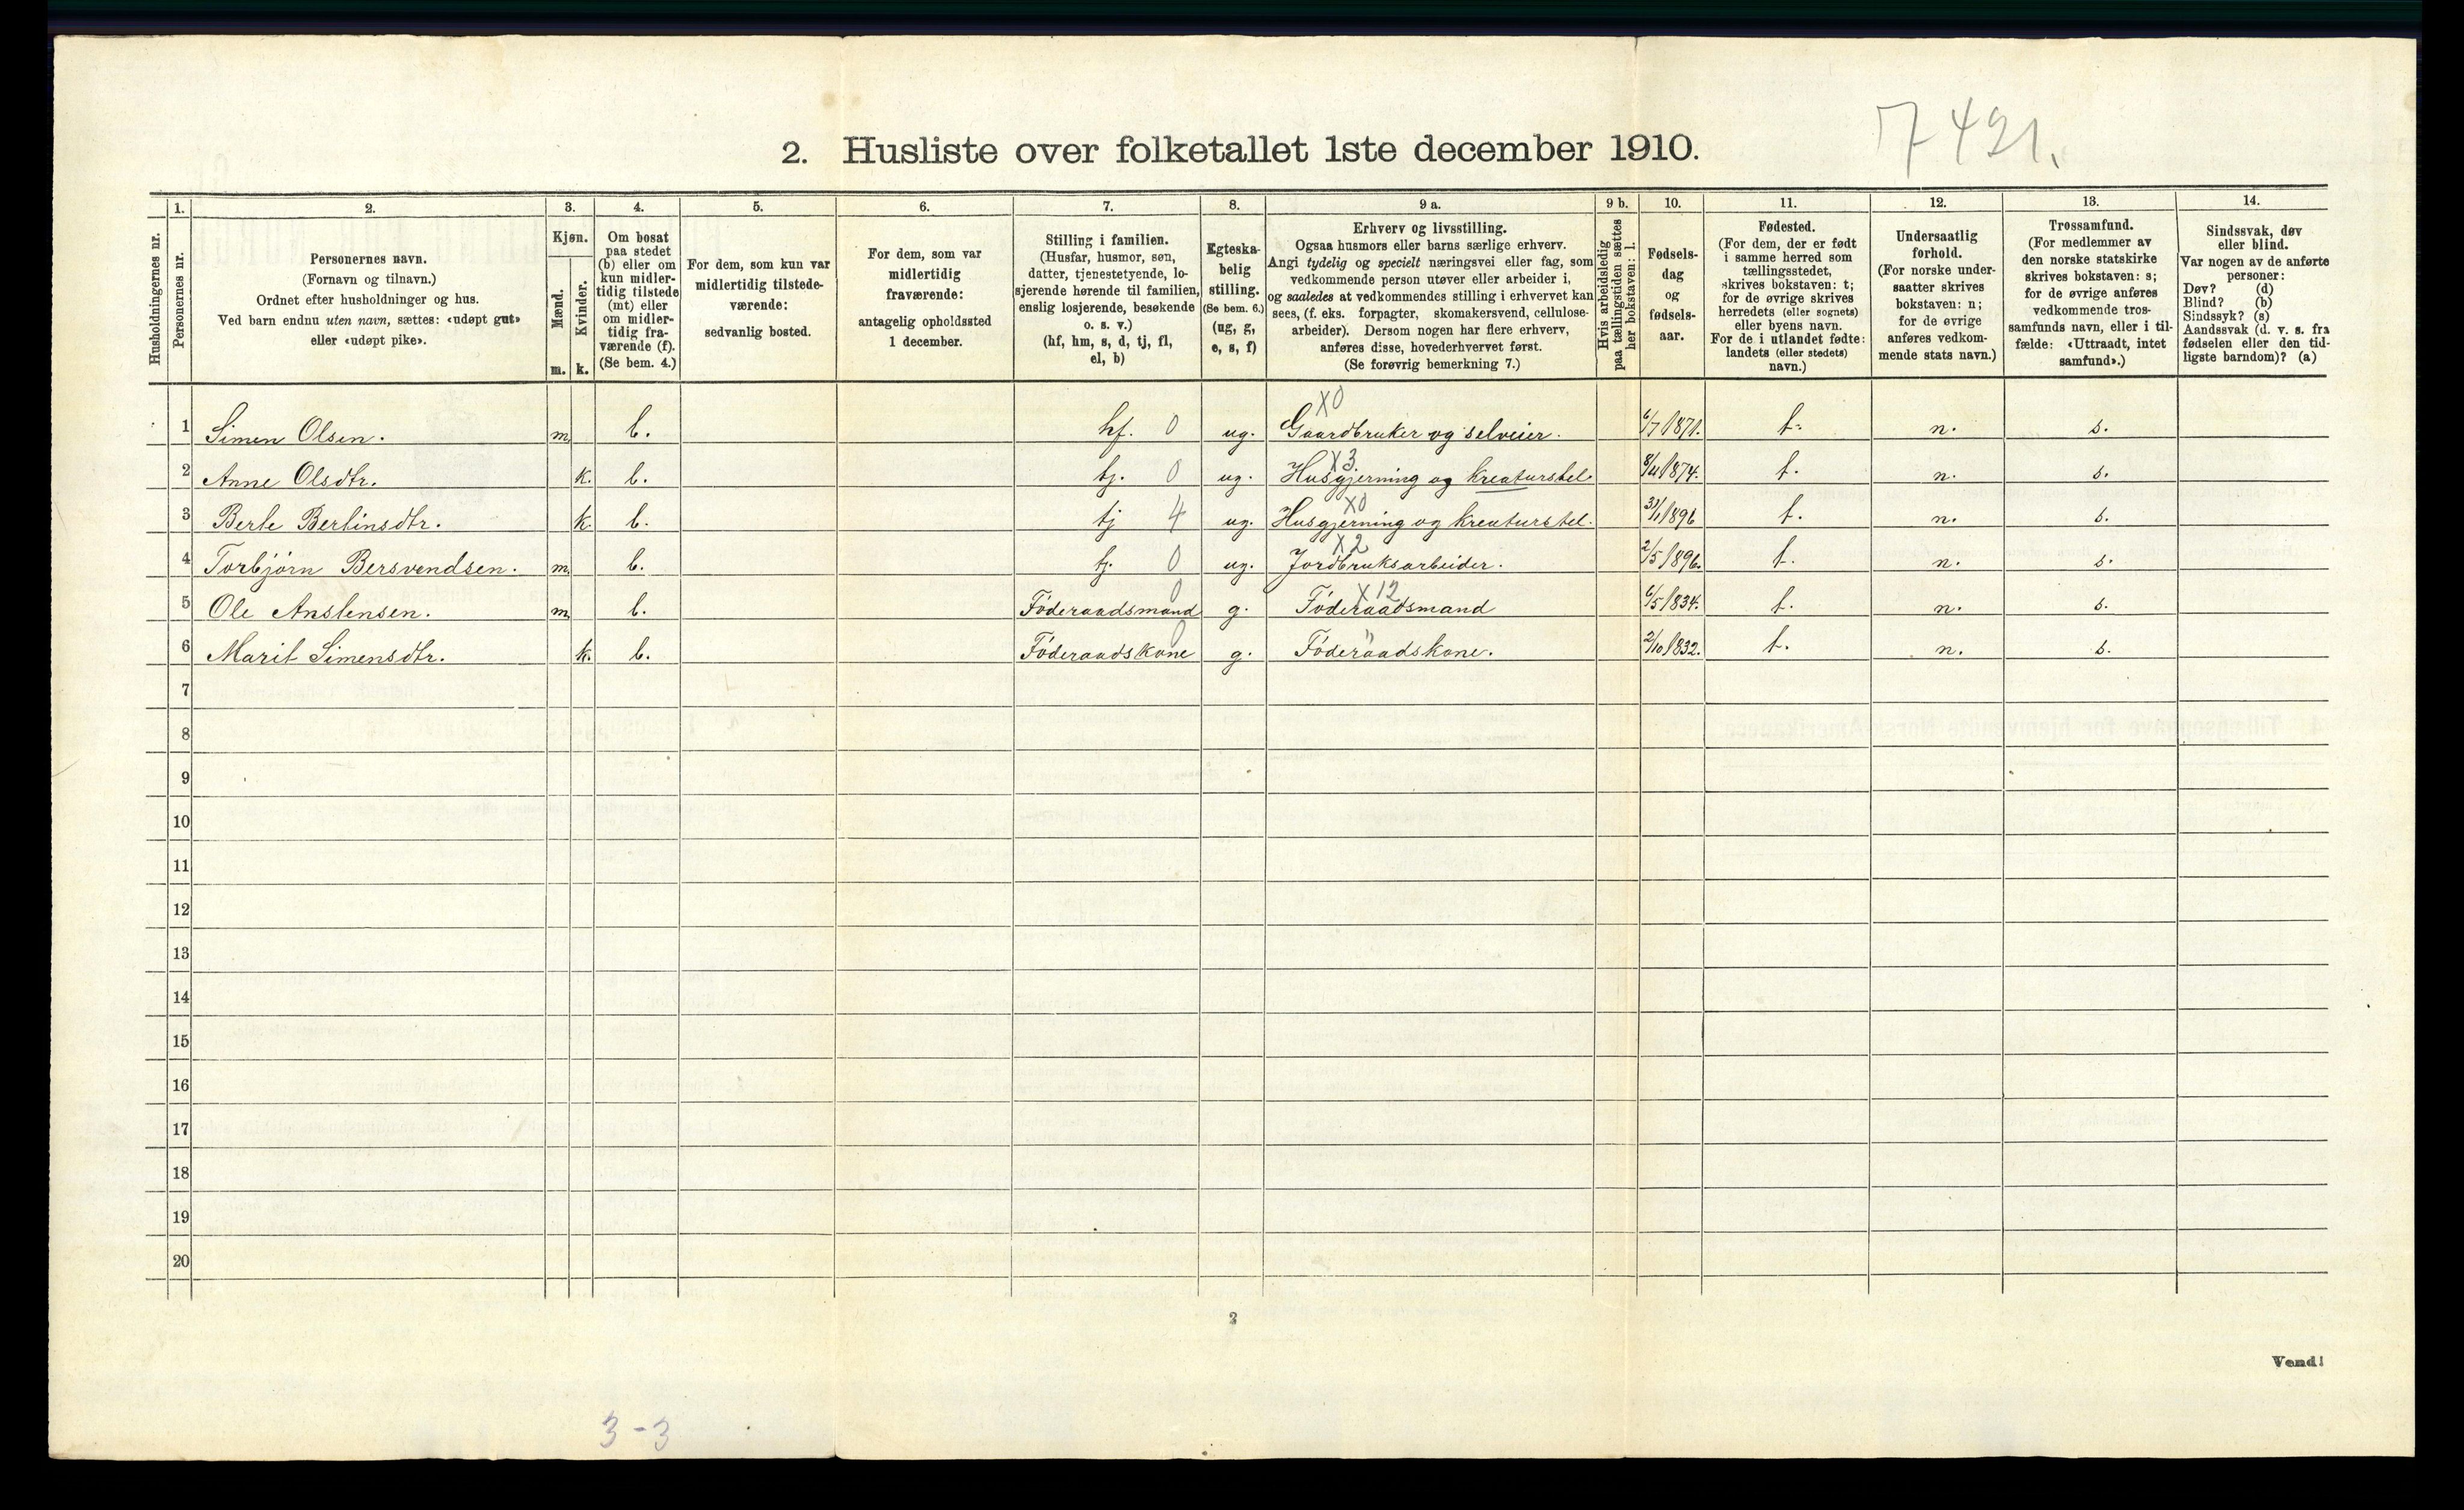 7421.
2. Husliste over folketallet 1ste december 1910.
Husholdningernes nr.
1. Personernes nr.
2. Personernes navn.
(Fornavn og tilnavn.)
Ordnet efter husholdninger og hus.
Ved barn endnu uten navn, sættes: «udøpt gut»
eller «udøpt pike».
3. Kjøn.
Mænd. m.
Kvinder. k.
4. Om bosat
paa stedet
(b) eller om
kun midler-
tidig tilstede
(mt) eller
om midler-
tidig fra-
værende (f).
(Se bem. 4.)
5. For dem, som kun var
midlertidig tilstede-
værende:
sedvanlig bosted.
6. For dem, som var
midlertidig
fraværende:
antagelig opholdssted
1 december.
7. Stilling i familien.
(Husfar, husmor, søn,
datter, tjenestetyende, lo-
sjerende hørende til familien,
enslig losjerende, besøkende
o. s. v.)
(hf, hm, s, d, tj, fl,
el, b)
8. Egteska-
belig
stilling.
(Se bem. 6.)
(ug, g,
e, s, f)
9 a. Erhverv og livsstilling.
Ogsaa husmors eller barns særlige erhverv.
Angi tydelig og specielt næringsvei eller fag, som
vedkommende person utøver eller arbeider i,
og saaledes at vedkommendes stilling i erhvervet kan
sees, (f. eks. forpagter, skomakersvend, cellulose-
arbeider). Dersom nogen har flere erhverv,
anføres disse, hovederhvervet først.
(Se forøvrig bemerkning 7.)
9 b. Hvis arbeidsledig
paa tællingstiden sættes
her bokstaven: l.
10. Fødsels-
dag
og
fødsels-
aar.
11. Fødested.
(For dem, der er født
i samme herred som
tællingsstedet,
skrives bokstaven: t;
for de øvrige skrives
herredets (eller sognets)
eller byens navn.
For de i utlandet fødte:
landets (eller stedets)
navn.)
12. Undersaatlig
forhold.
(For norske under-
saatter skrives
bokstaven: n;
for de øvrige
anføres vedkom-
mende stats navn.)
13. Trossamfund.
(For medlemmer av
den norske statskirke
skrives bokstaven: s;
for de øvrige anføres
vedkommende tros-
samfunds navn, eller i til-
fælde: «Uttraadt, intet
samfund».)
14. Sindssvak, døv
eller blind.
Var nogen av de anførte
personer:
Døv? (d)
Blind? (b)
Sindssyk? (s)
Aandssvak (d. v. s. fra
fødselen eller den tid-
ligste barndom)? (a)
X0
1 Simen Olsen. m. b. hf. 0 ug. Gaardbruker og selveier. 6/7 1871. t. n. s.
X3
2 Anne Olsdtr. k. b. tj. 0 ug. Husgjerning og kreaturstel. 8/4 1874. t. n. s.
X0
3 Berte Bertinsdtr. k. b. tj 4 ug. Husgjerning og kreaturstel. 31/1 1896 t. n. s.
X2
4 Torbjørn Bersvendsen. m. b. tj. 0 ug. Jordbruksarbeider. 2/5 1896. t. n. s.
0 X12
5 Ole Anstensen. m. b. Föderaadsmand g. Föderaadsmand 6/5 1834. t. n. s.
0 "
6 Marit Simensdtr. k. b. Föderaadskone g. Föderaadskone. 2/10 1832. t. n. s.
7
8
9
10
11
12
13
14
15
16
17
18
19
20
2
Vend!
3-3